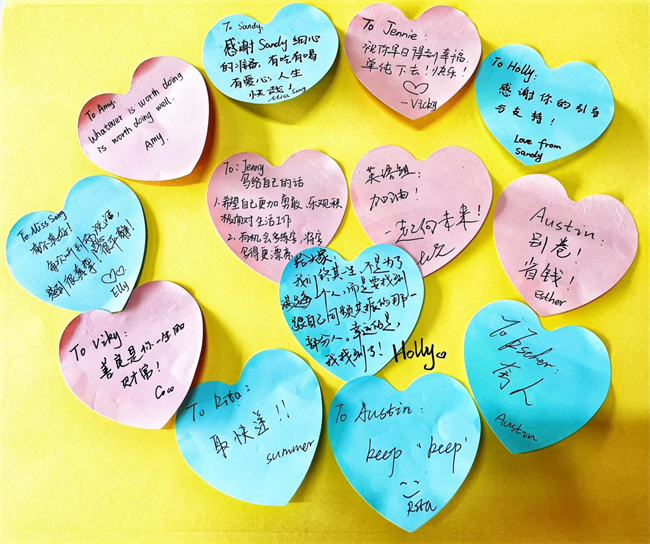 To Sandy,
感谢Sandy细心
的准备,有吃有喝
有爱心,人生
快哉!
Miss Song
To Jennie:
祝你早日得到幸福,
单纯下去!快乐!
-Vicky
To Holly:
感谢你的引导
与支持!
Love from
Sandy
To Amy,
Whatever is worth doing
is worth doing well.
Amy.
To: Jenny
写给自己的话
1.希望自己更加勇敢、乐观积
极面对生活工作
2.有机会多练字,将字
写得更漂亮
英语组:
加油!
一起向未来!
Austin:
别卷!
省钱!
Esther
To Miss Song
每次听到你说话,
感到很真挚,很平静!
Elly
给大家:
我们终其一生,不是为了
满足每一个人,而是要找到
跟自己同频共振的那一
部分人。幸运的是,
我找到了!
Holly
To Viky:
善良是你一生的
财富!
Coco
To Rita:
取快递!!
summer
To Austin:
keep 'keep'
Rita
To
Austin